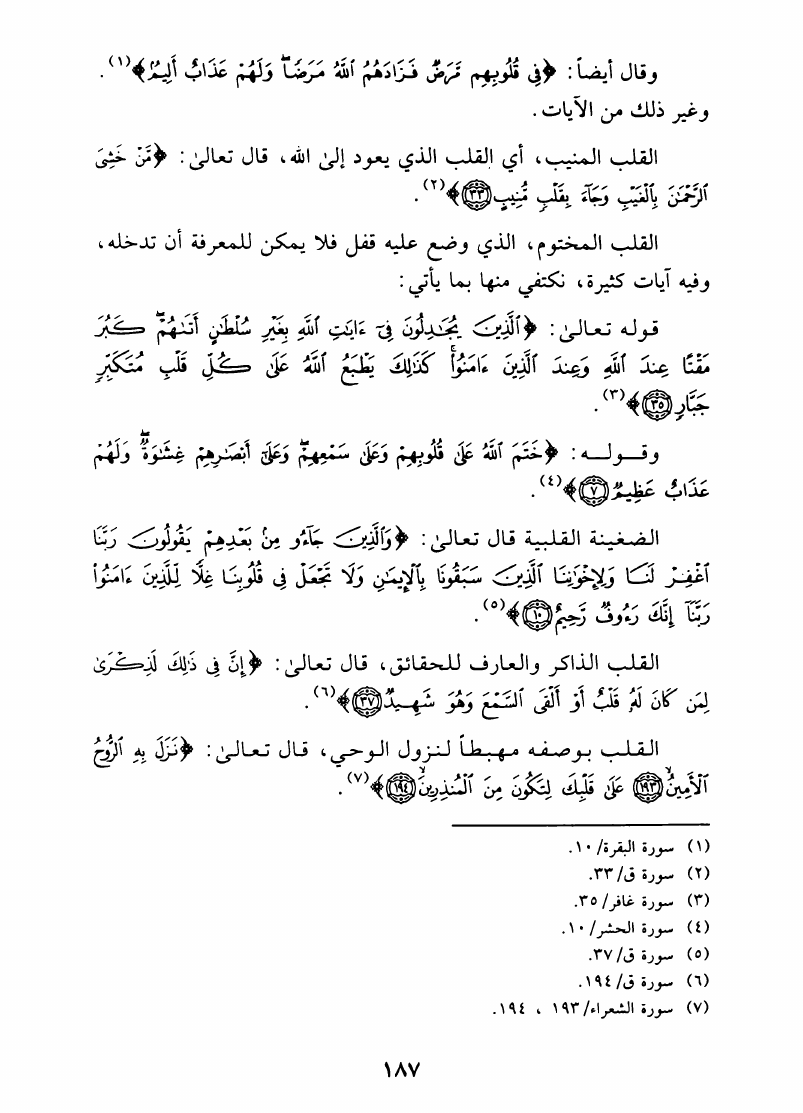 وقال أيضاً: ﴿فِي قُلُوبِهِم مَّرَضٌ فَزَادَهُمُ ٱللَّهُ مَرَضًاۖ وَلَهُمْ عَذَابٌ أَلِيمٌۢ﴾(١).
وغير ذلك من الآيات.
القلب المنيب، أي القلب الذي يعود إلى الله، قال تعالىٰ: ﴿مَّنْ خَشِىَ
ٱلرَّحْمَٰنَ بِٱلْغَيْبِ وَجَآءَ بِقَلْبٍ مُّنِيبٍ ٣٣﴾(٢).
القلب المختوم، الذي وضع عليه قفل فلا يمكن للمعرفة أن تدخله،
وفيه آيات كثيرة، نكتفي منها بما يأتي:
قوله تعالىٰ: ﴿ٱلَّذِينَ يُجَٰدِلُونَ فِىٓ ءَايَٰتِ ٱللَّهِ بِغَيْرِ سُلْطَٰنٍ أَتَىٰهُمْۖ كَبُرَ
مَقْتًا عِندَ ٱللَّهِ وَعِندَ ٱلَّذِينَ ءَامَنُوا۟ۚ كَذَٰلِكَ يَطْبَعُ ٱللَّهُ عَلَىٰ كُلِّ قَلْبِ مُتَكَبِّرٍ
جَبَّارٍ ٣٥﴾(٣).
وقوله: ﴿خَتَمَ ٱللَّهُ عَلَىٰ قُلُوبِهِمْ وَعَلَىٰ سَمْعِهِمْۖ وَعَلَىٰٓ أَبْصَٰرِهِمْ غِشَٰوَةٌۖ وَلَهُمْ
عَذَابٌ عَظِيمٌ ٧﴾(٤).
الضغينة القلبية قال تعالىٰ: ﴿وَٱلَّذِينَ جَآءُو مِنۢ بَعْدِهِمْ يَقُولُونَ رَبَّنَا
ٱغْفِرْ لَنَا وَلِإِخْوَٰنِنَا ٱلَّذِينَ سَبَقُونَا بِٱلْإِيمَٰنِ وَلَا تَجْعَلْ فِى قُلُوبِنَا غِلًّا لِّلَّذِينَ ءَامَنُوا۟
رَبَّنَآ إِنَّكَ رَءُوفٌ رَّحِيمٌ ١٠﴾(٥).
القلب الذاكر والعارف للحقائق، قال تعالىٰ: ﴿إِنَّ فِى ذَٰلِكَ لَذِكْرَىٰ
لِمَن كَانَ لَهُۥ قَلْبٌ أَوْ أَلْقَى ٱلسَّمْعَ وَهُوَ شَهِيدٌ ٣٧﴾(٦).
القلب بوصفه مهبطاً لنزول الوحي، قال تعالىٰ: ﴿نَزَلَ بِهِ ٱلرُّوحُ
ٱلْأَمِينُ ١٩٣ عَلَىٰ قَلْبِكَ لِتَكُونَ مِنَ ٱلْمُنذِرِينَ ١٩٤﴾(٧).
(١) سورة البقرة/١٠.
(٢) سورة ق/٣٣.
(٣) سورة غافر/٣٥.
(٤) سورة الحشر/١٠.
(٥) سورة ق/٣٧.
(٦) سورة ق/١٩٤.
(٧) سورة الشعراء/١٩٣ ، ١٩٤.
١٨٧